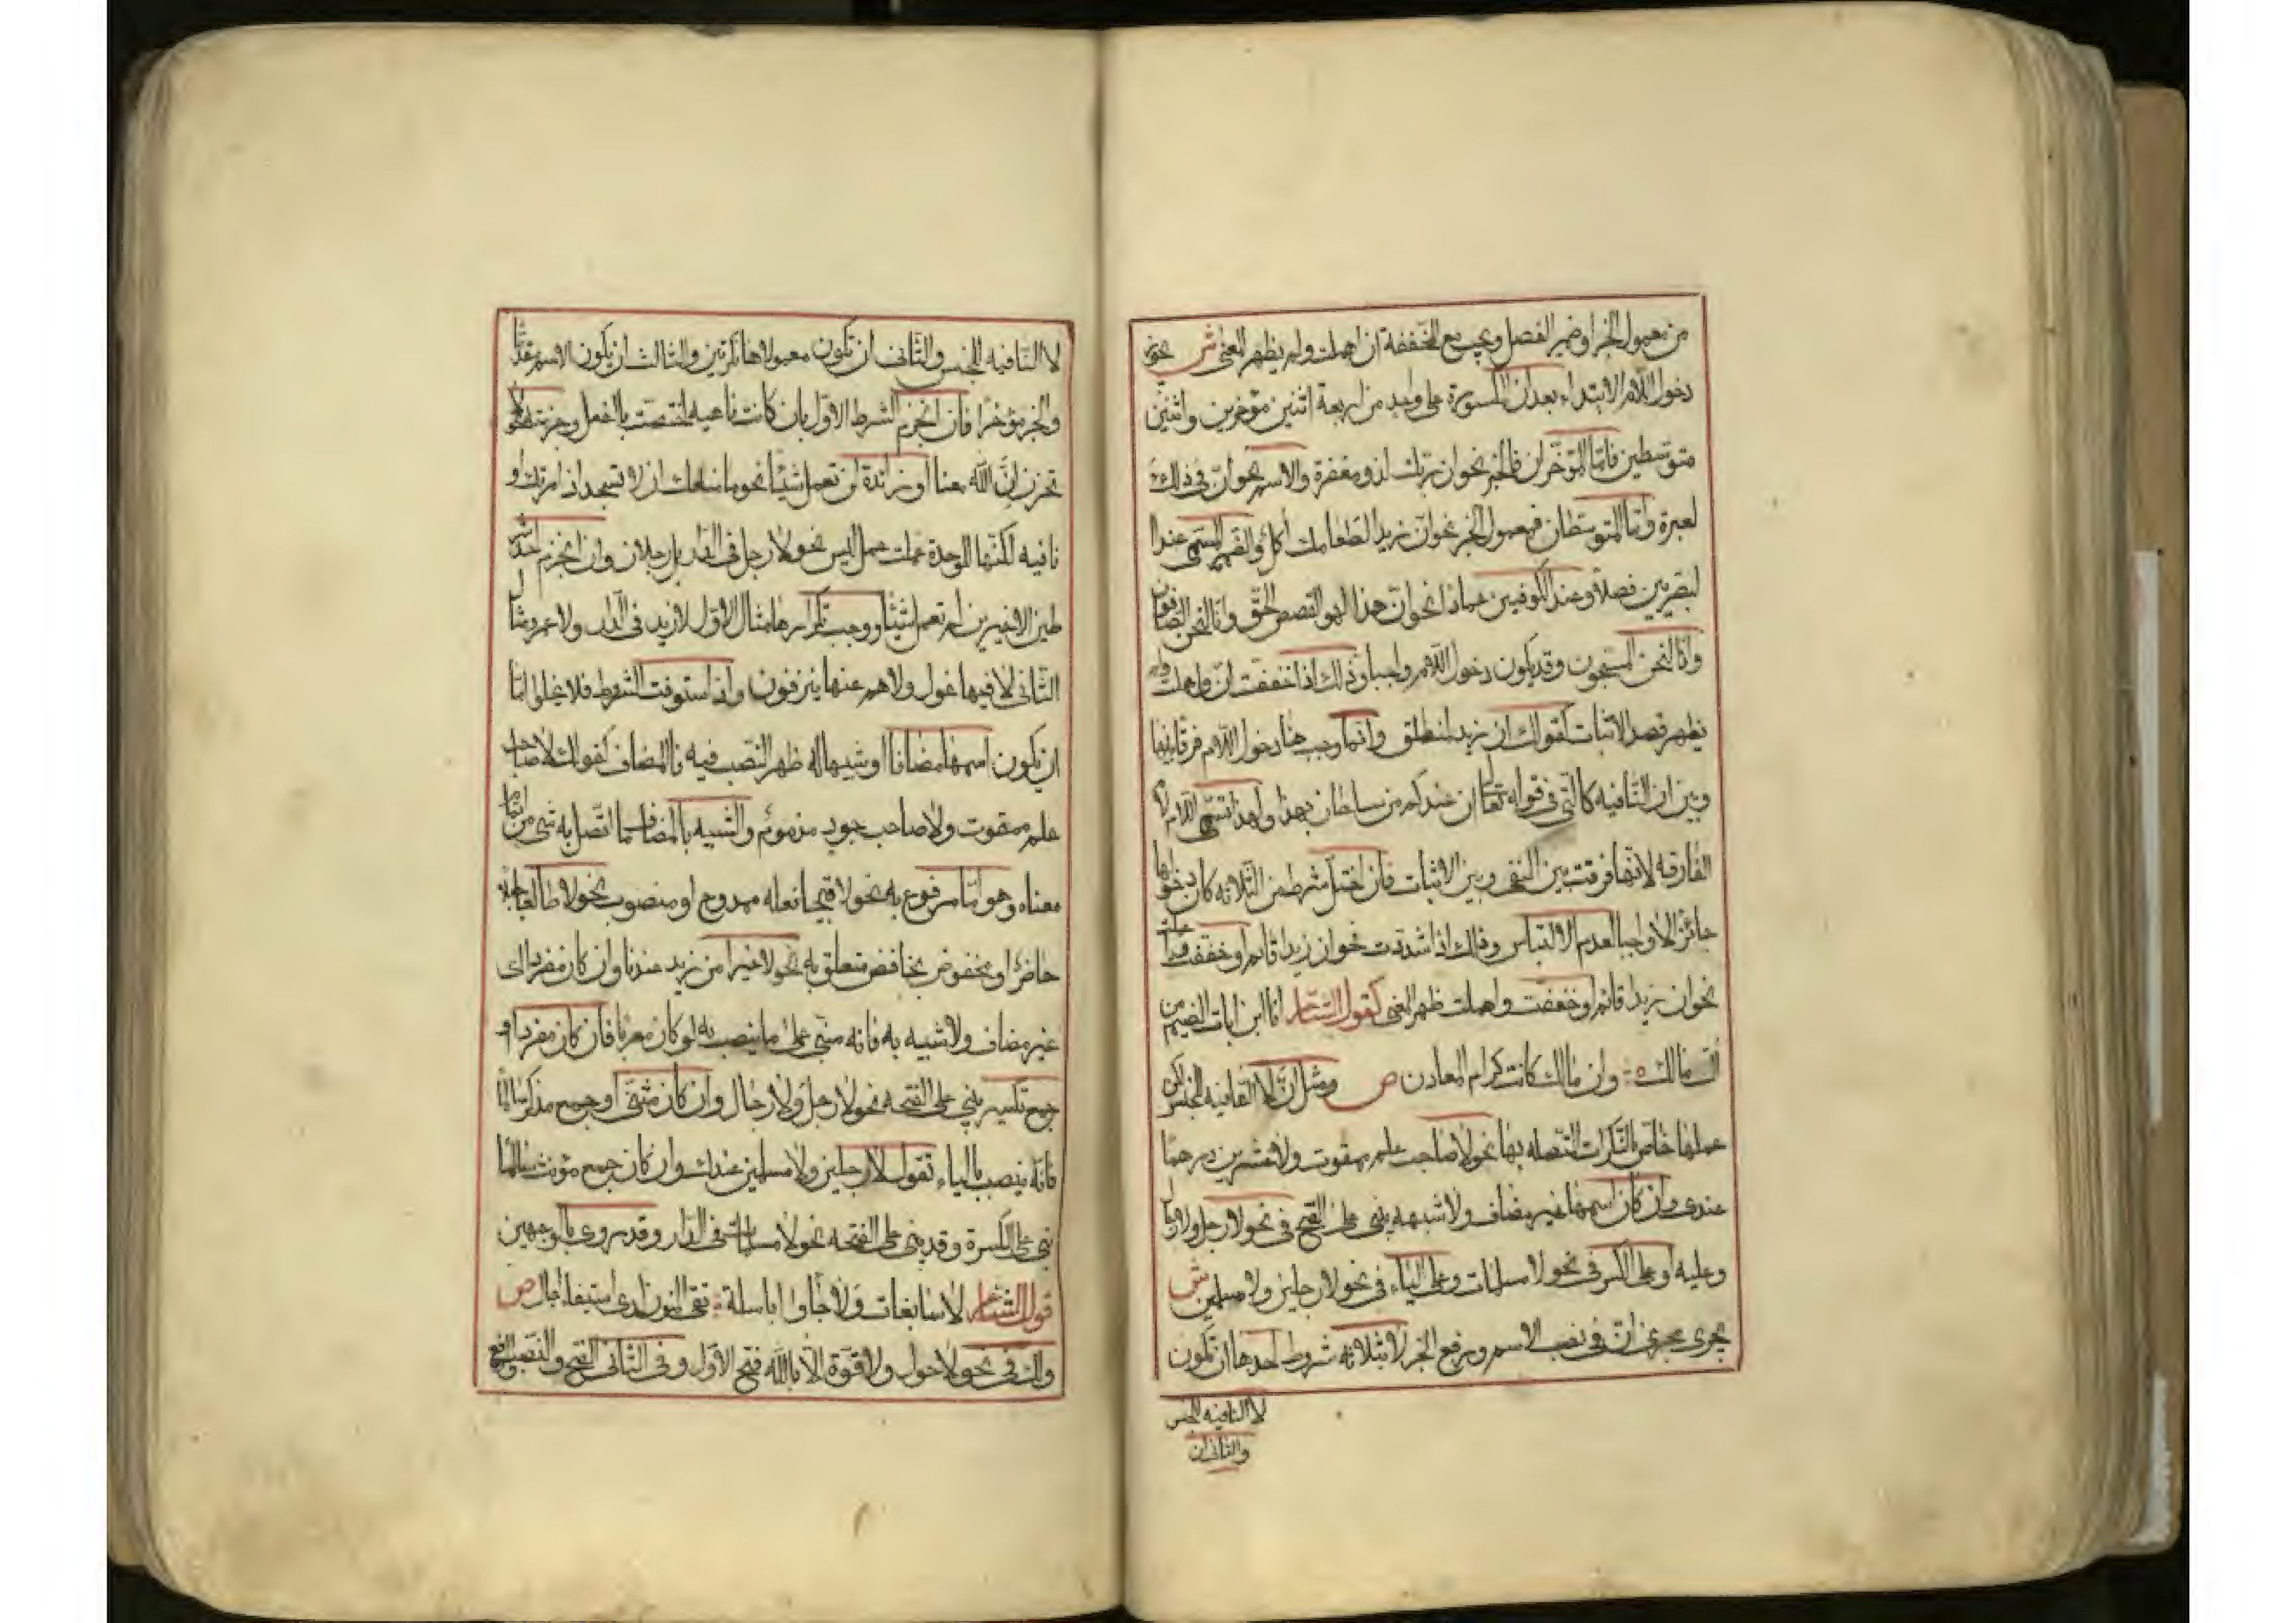 من معمول الخبر او ضمير الفصل ويجب مع المخففة ان اهملت ولم يظهر المعنى ش يجوز
دخول اللام الابتداء بعد ان المكسورة على واحد من اربعة اثنين مؤخرين واثنين
متوسطين فاما المؤخران فالخبر نحو ان ربك لذو مغفرة والاسم نحو ان في ذلك
لعبرة واما المتوسطان فمعمول الخبر نحو ان زيدا لطعامك اكل والضمير المسمى عند ا
لبصريين فصلا وعند الكوفيين عمادا نحو ان هذا لهو القصص الحق وانا لنحن الصافون
وانا لنحن المسبحون وقد يكون دخول اللام واجبا وذلك اذا خففت ان واهملت ولم
يظهر قصد الاثبات كقولك ان زيد لمنطلق وانما وجب هنا دخول اللام فرقا بينها
وبين ان النافيه كالتي في قوله تعالى ان عندكم من سلطان بهذا ولهذا تسمى اللام
الفارقه لانها فرقت بين النفى وبين الاثبات فان اختل شرط من الثلاثه كان دخولها
جائزا لا واجبا لعدم الالتباس وذلك اذا شددت نحو ان زيدا قائم او خففت
نحو ان زيدا قائم او خففت واهملت ظهر المعنى كقول الشاعر انا ابن ابات الضيم من
ال مالك وان مالك كانت كرام المعادن ص ومثل ان لا النافيه للجنس لكن
عملها خاص بالنكرات المتصله بها نحو لا صاحب علم ممقوت ولا عشرين درهما
عندى وان كان اسمها غير مضاف ولا شبهه بنى على الفتح فى نحو لا رجل ولا رجال
وعليه او على الكسر فى نحو لا مسلمات وعلى الياء فى نحو لا رجلين ولا مسلمين ش
يجرى مجرى ان فى نصب الاسم ورفع الخبر لا بثلاثه شروط احدها ان تكون
لا النافيه للجنس
والثانى ان
لا النافيه للجنس والثانى ان تكون معمولاها نكرتين والثالث ان يكون الاسم مقدما
والخبر مؤخرا فان انخزم الشرط الاول بان كانت ناهيه اختصت بالفعل وجزمته نحو لا
تحزن ان الله معنا او زائدة لم تعمل شيئا نحو ما منعك ان لا تسجد اذ امرتك او
نافيه لكنها للوحدة عملت عمل ليس نحو لا رجل فى الدار بل رجلان وان انخزم احد الشر
طين الاخيرين لم تعمل شيئا ووجب تكرارها مثال الاول لا زيد فى الدار ولا عمرو ومثال
الثانى لا فيها غول ولا هم عنها ينزفون واذا استوفت الشروط فلا يخلوا اما
ان يكون اسمها مضافا او شبيها به ظهر النصب فيه فالمضاف كقولك لا صاحب
علم ممقوت ولا صاحب جود مذموم والشبيه بالمضاف ما اتصل به شى من تمام
معناه وهو اما مرفوع به نحو لا قبيحا فعله ممدوح او منصوب نحو لا طالعا جبلا
حاضر او مخفوض بخافض متعلق به نحو لا خيرا من زيد عندنا وان كان مفردا اى
غير مضاف ولا شبيه به فانه مبنى على ما ينصب به لو كان معربا فان كان مفردا او
جمع تكسير بنى على الفتحه نحو لا رجل ولا رجال وان كان مثنى او جمع مذكر سالما
فانه ينصب بالياء تقول لا رجلين ولا مسلمين عندك وان كان جمع مؤنث سالما
بنى على الكسرة وقد بنى على الفتحه نحو لا مسلمات فى الدار وقد روى بالوجهين
قول الشاعر لا سابغات ولا جاواء باسلة تقى المنون لدى استيفاء اجال ص
ولك فى نحو لا حول ولا قوة الا بالله فتح الاول وفى الثانى الفتح والنصب والرفع